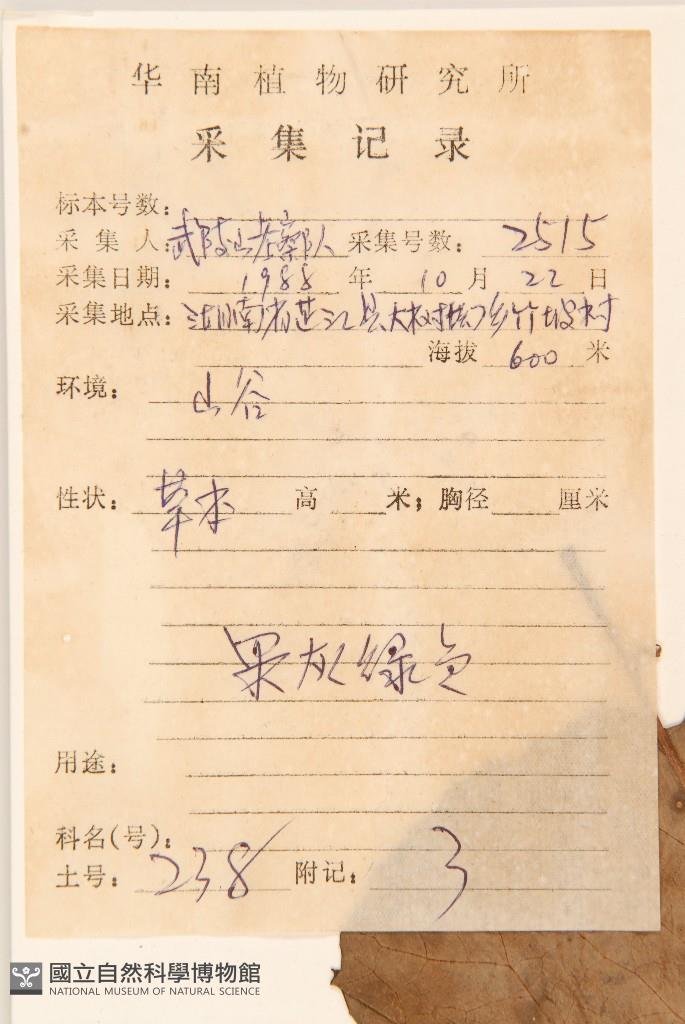 华南植物研究所
采集记录
标本号数：
采集人：武陵山考察队 采集号数：2515
采集日期：1988年10月22日
采集地点：湖南省芷江县大树坳乡竹坡村
海拔 600 米
环境：山谷
性状：草本 高 米；胸径 厘米
果灰绿色
用途：
科名(号)：
土号：238 附记：3
國立自然科學博物館
NATIONAL MUSEUM OF NATURAL SCIENCE